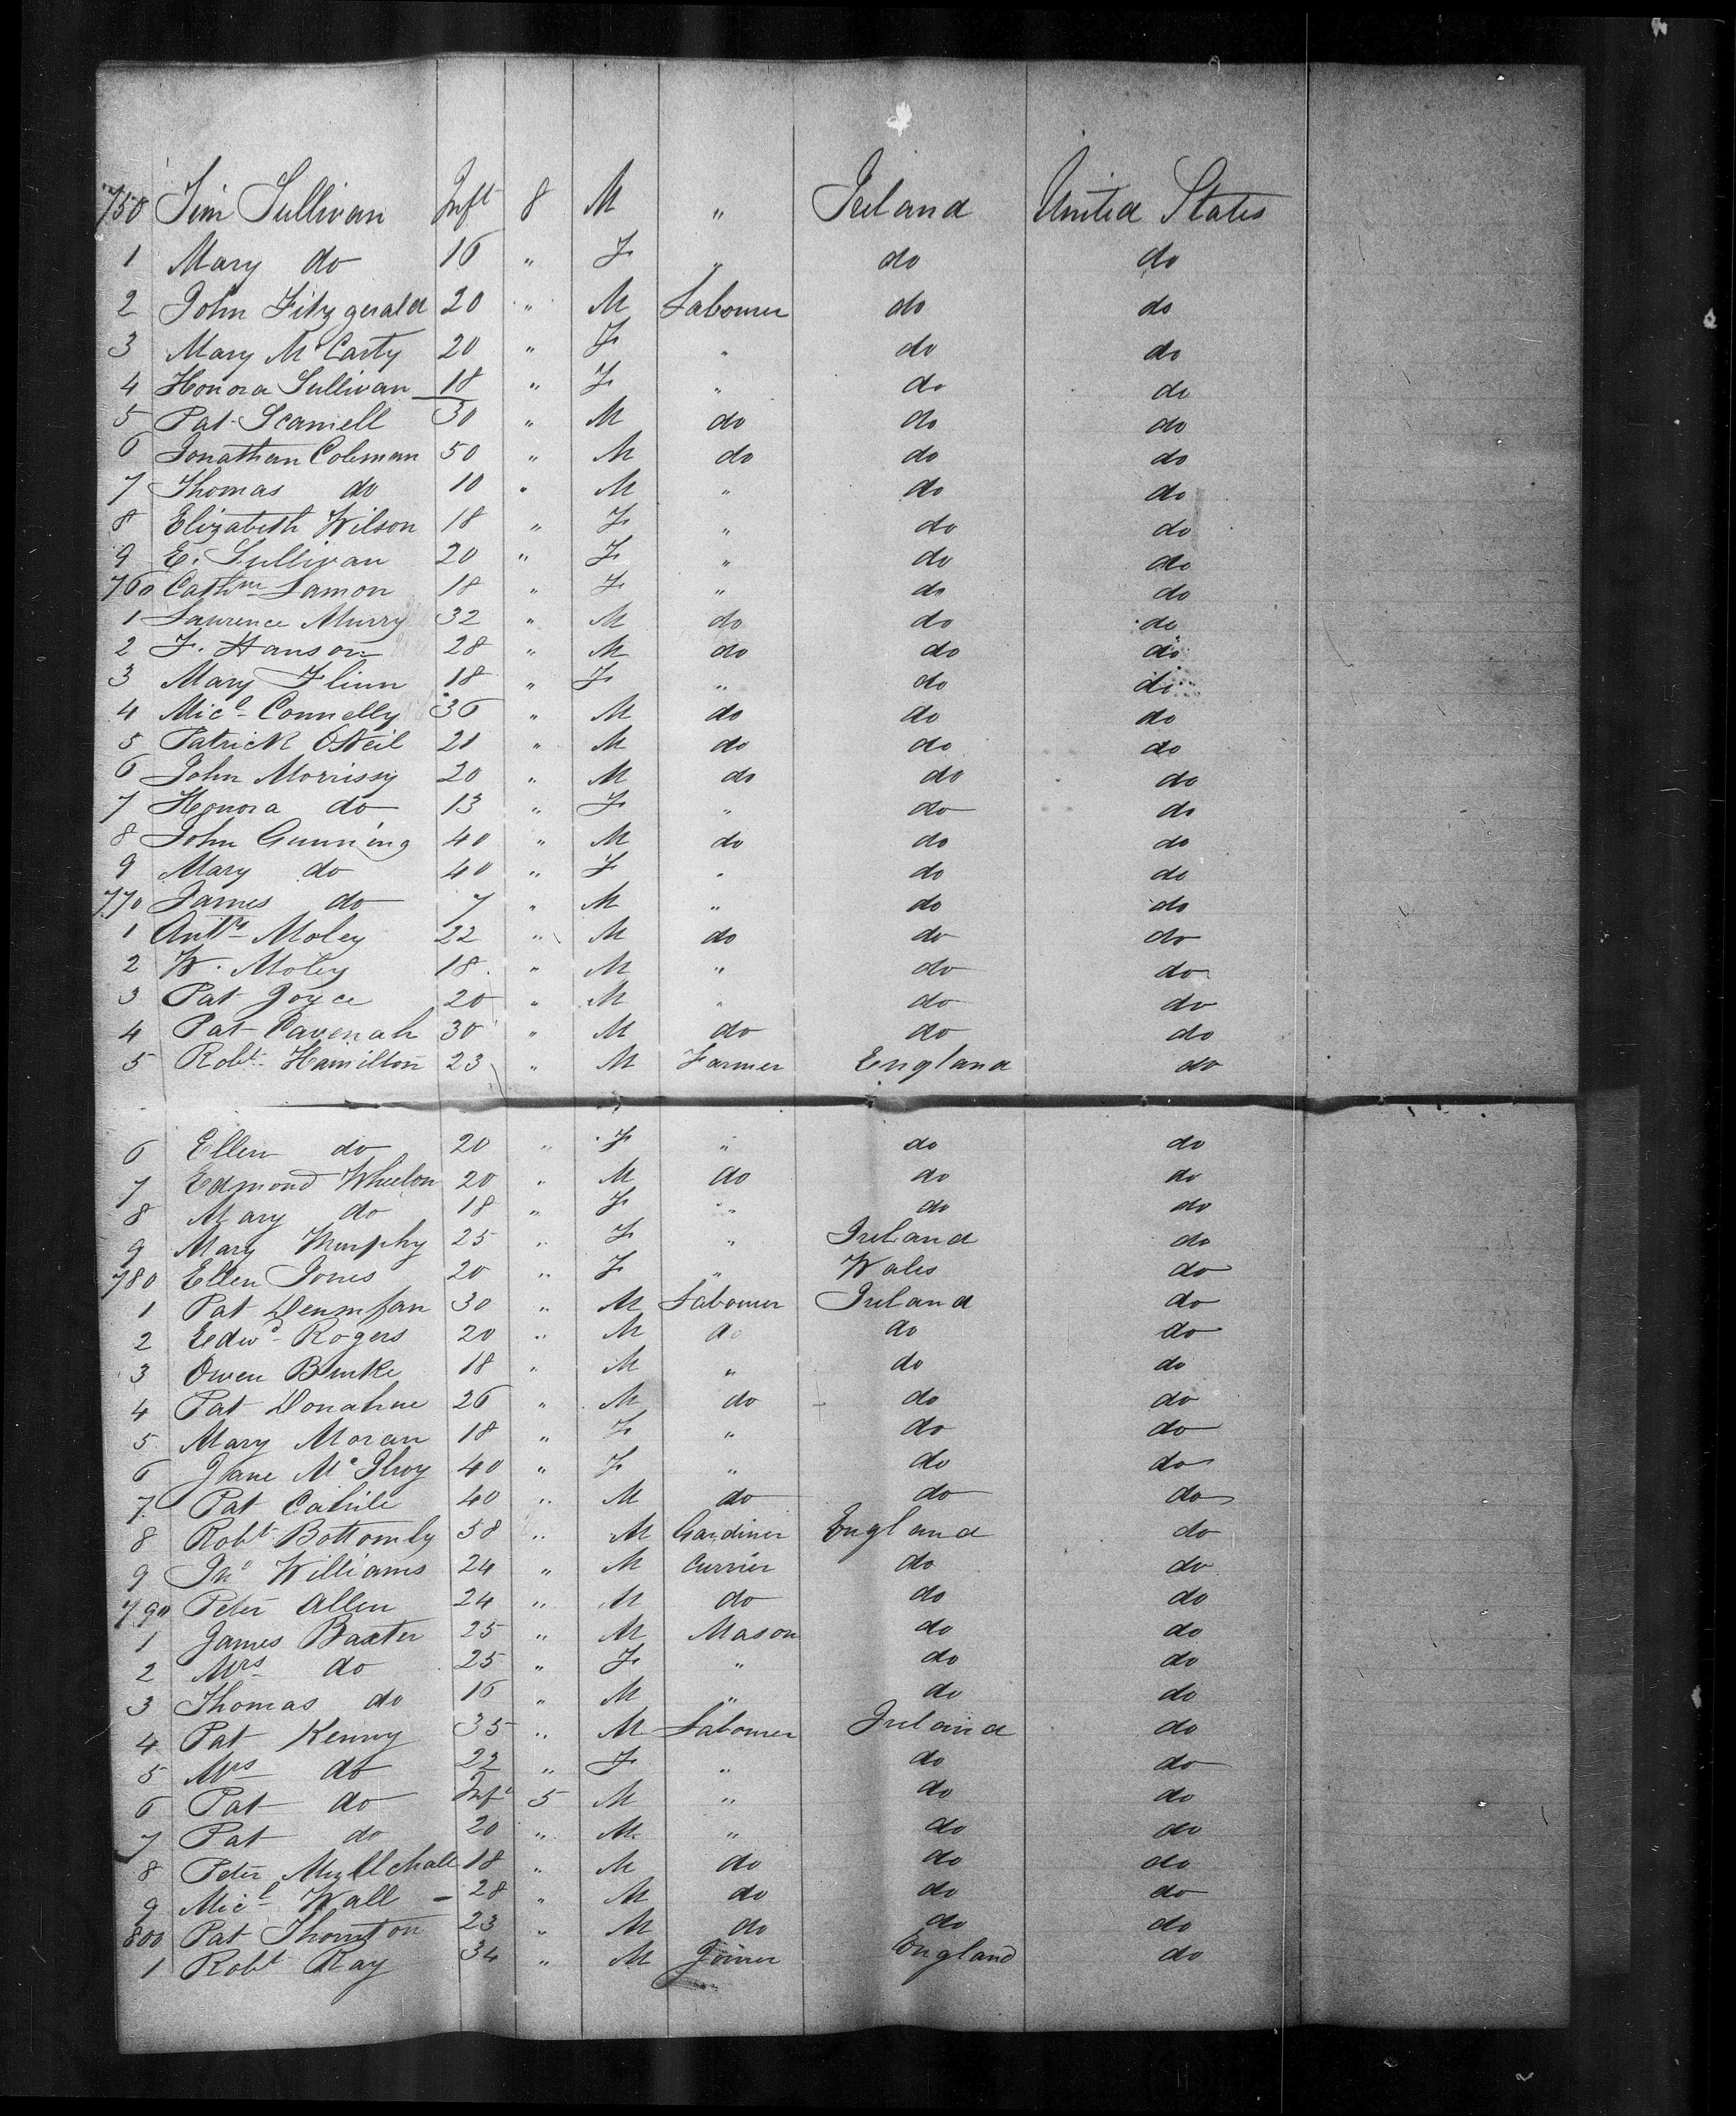 750 Tim Sullivan Inft 8 M " Ireland United States
1 Mary do 16 " F " do do
2 John Fitzgerald 20 " M Labourer do do
3 Mary McCarty 20 " F " do do
4 Honora Sullivan 18 " F " do do
5 Pat Scannell 30 " M do do do
6 Jonathan Coleman 50 " M do do do
7 Thomas do 10 " M " do do
8 Elizabeth Wilson 18 " F " do do
9 E. Sullivan 20 " F " do do
760 Cathne Lamon 18 " F " do do
1 Laurence Murry 32 " M do do do
2 F. Hanson 28 " M do do do
3 Mary Flinn 18 " F " do do
4 Micl Connelly 36 " M do do do
5 Patrick ONeil 21 " M do do do
6 John Morrissy 20 " M do do do
7 Honora do 13 " F " do do
8 John Gunning 40 " M do do do
9 Mary do 40 " F " do do
770 James do 7 " M " do do
1 Anty Moley 22 " M do do do
2 W. Moley 18 " M " do do
3 Pat Joyce 20 " M " do do
4 Pat Cavenah 30 " M do do do
5 Robt Hamilton 23 " M Farmer England do
6 Ellen do 20 " F " do do
7 Edmond Wheelon 20 " M do do do
8 Mary do 18 " F " do do
9 Mary Murphy 25 " F " Ireland do
780 Ellen Jones 20 " F " Wales do
1 Pat 30 " M Labourer Ireland do
2 Edwd Rogers 20 " M do do do
3 Owen Burke 18 " M " do do
4 Pat Donahue 26 " M do do do
5 Mary Moran 18 " F " do do
6 Jane McIlroy 40 " F " do do
7 Pat 40 " M do do do
8 Robt Bottomly 58 " M Gardiner England do
9 Jno Williams 24 " M Currier do do
790 Peter Allen 24 " M do do do
1 James Baxter 25 " M Mason do do
2 Mrs do 25 " F " do do
3 Thomas do 16 " M " do do
4 Pat Kenny 35 " M Labourer Ireland do
5 Mrs do 22 " F " do do
6 Pat do Inft 5 M " do do
7 Pat do 20 " M " do do
8 Peter 18 " M do do do
9 Micl Wall 28 " M do do do
800 Pat Thornton 23 " M do do do
1 Robt Ray 34 " M Joiner England do